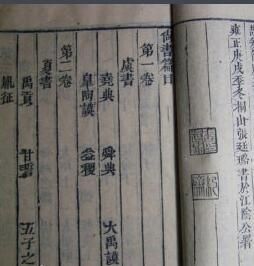 雍正庚戌季冬桐山張廷璐書於江陰公署
尚書篇目
第一卷
虞書
堯典 舜典 大禹謨
皋陶謨 益稷
第二卷
夏書
禹貢 甘誓 五子之
胤征